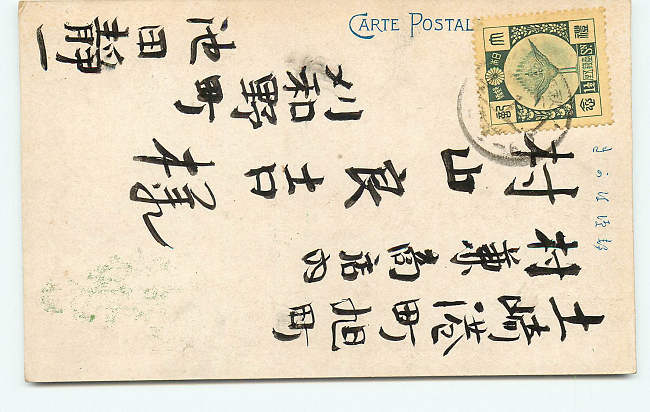 CARTE POSTAL
土崎港町旭町
村兼商店内
村山良吉様
刈和野町
池田静一